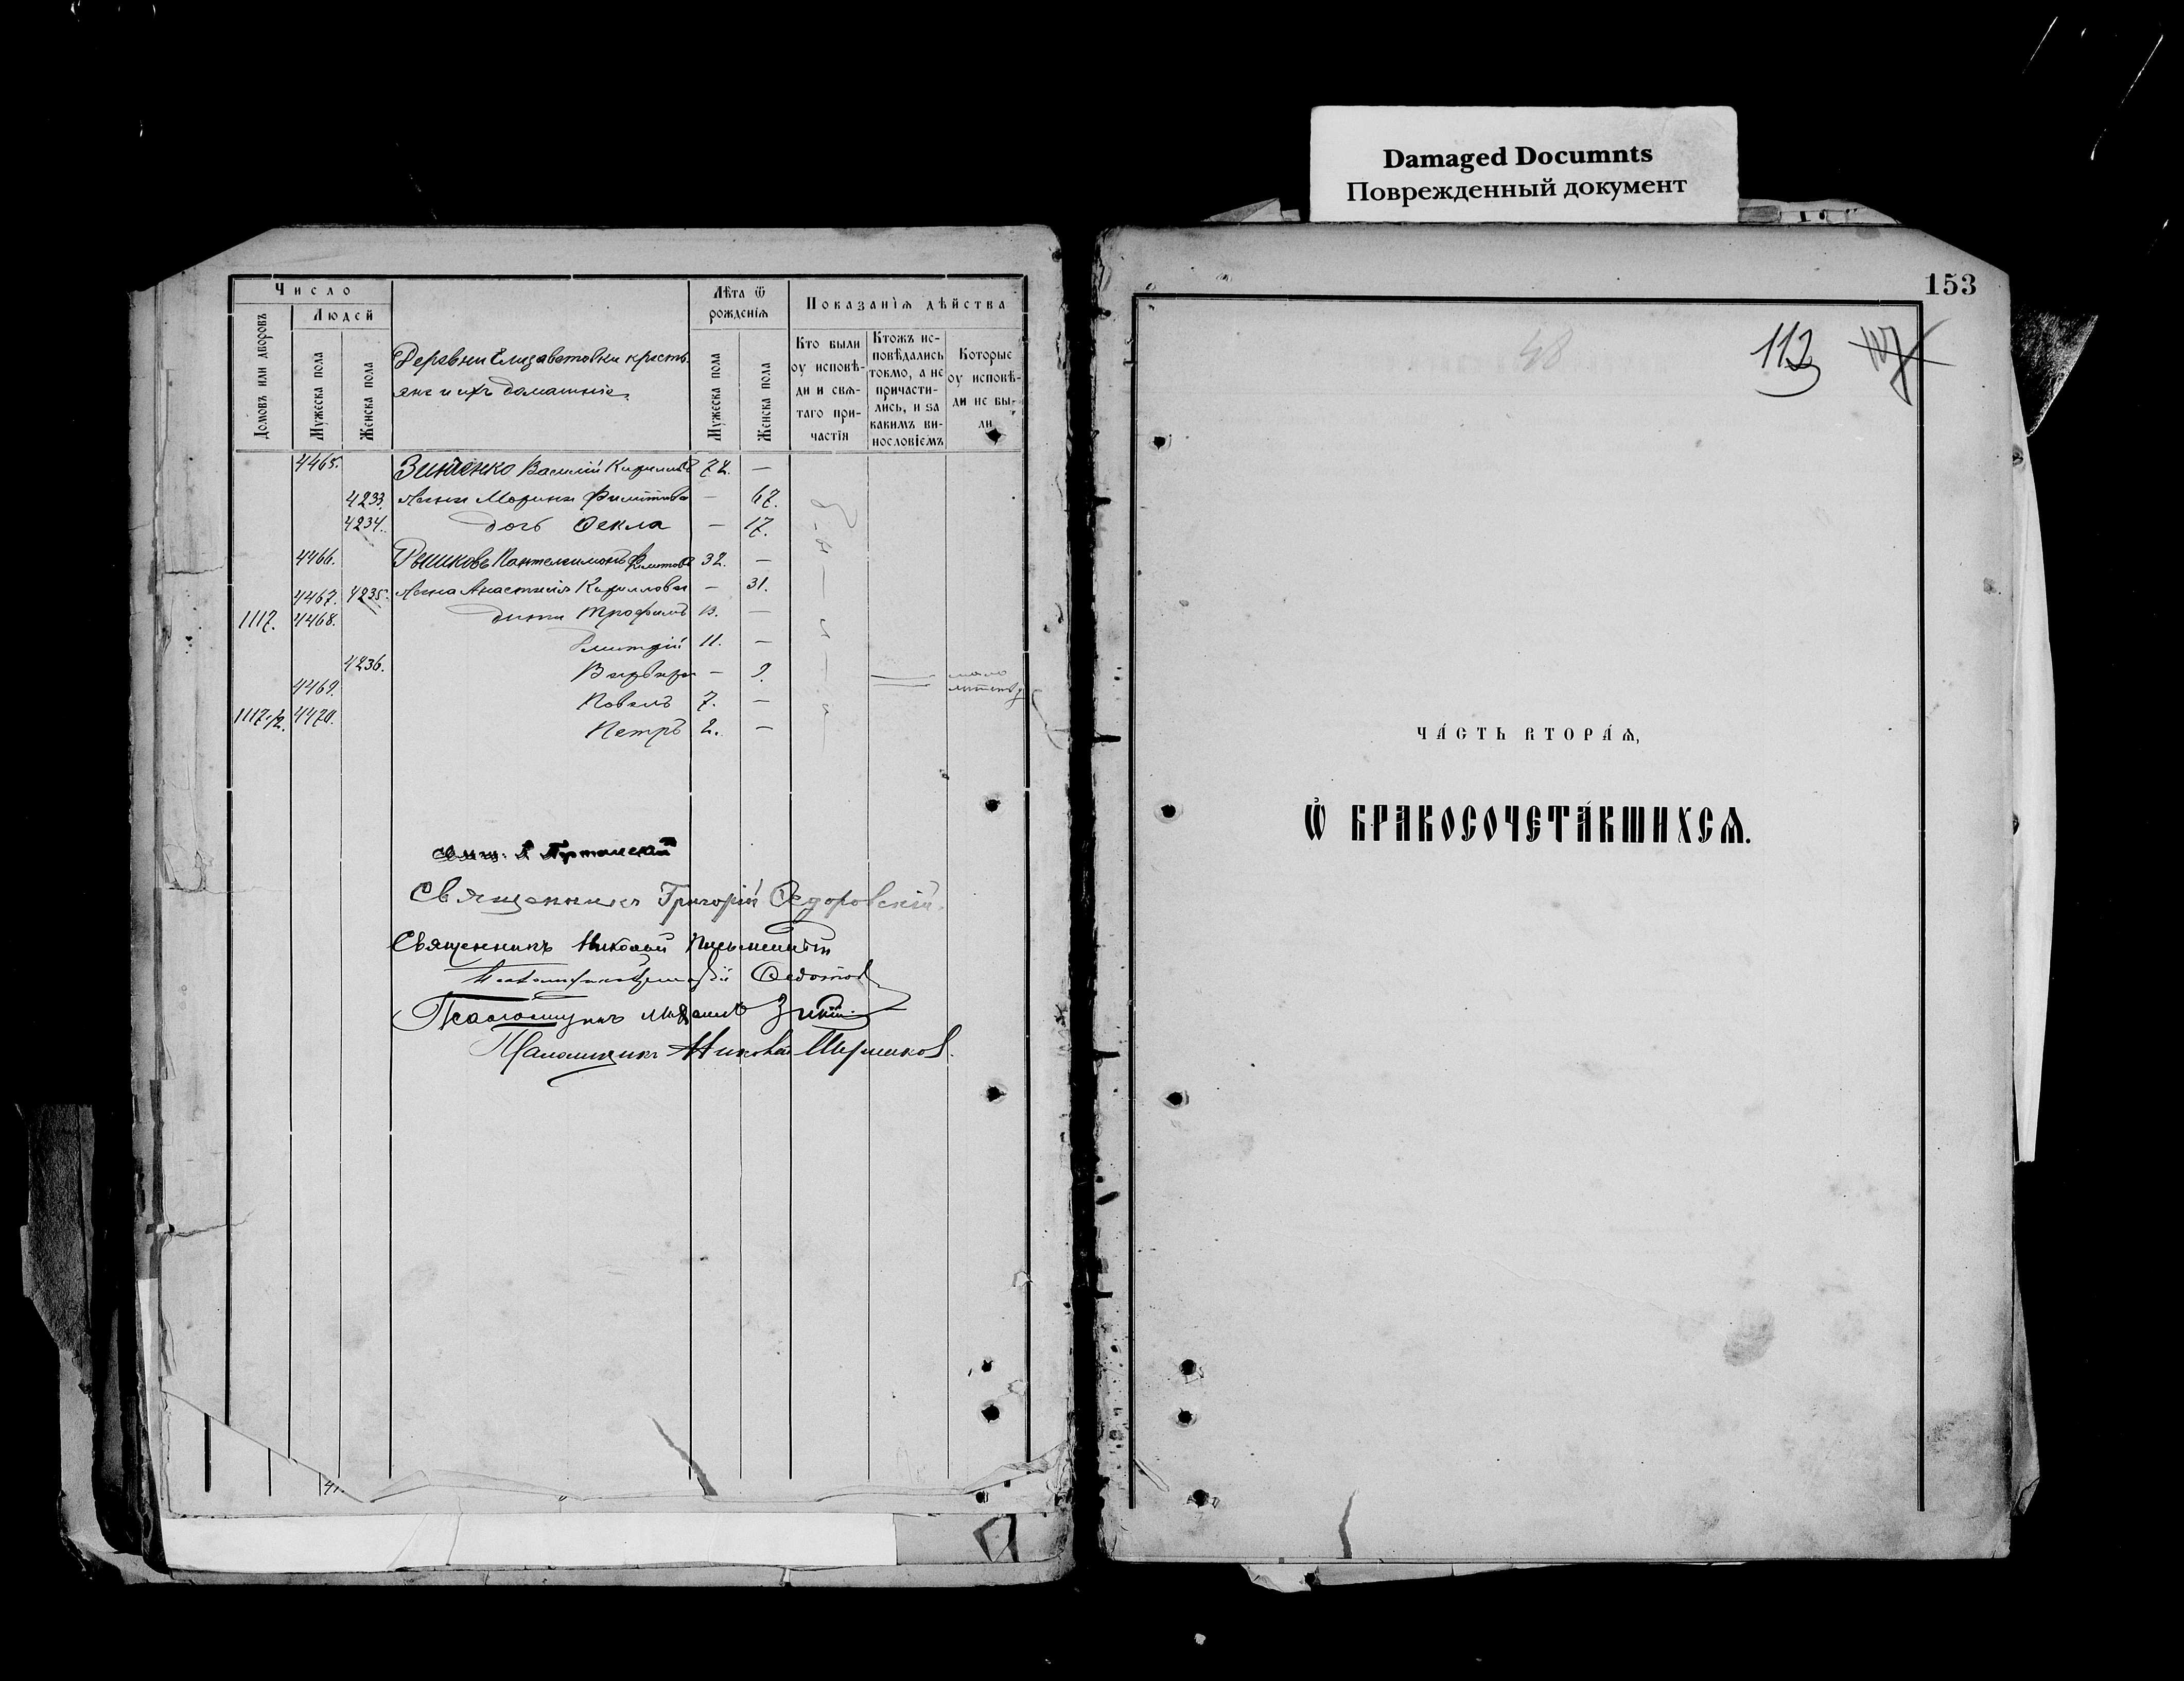 Damaged Documnts
Поврежденный документ
Число
Людей
Домовъ или дворовъ
Мужеска пола
Женска пола
Деревни Елизаветовки кресть
яне и ихъ домашніе.
Лѣта ѿ
рожденіѧ
Мужеска пола
Женска пола
Показаніѧ дѣйства
Кто были
оу исповѣ-
ди и свѧ-
таго при-
частіѧ
Ктожъ ис-
повѣдались
токмо, а не
причасти-
лись, и за
какимъ ви-
нословіемъ
Которые
оу исповѣ-
ди не бы-
ли
4465. Зинченко Василій Кириловъ 72. —
4233. Жена Марина Филиппова — 67.
4234. дочь Ѳекла — 17.
4466. Пантелеимонъ 32. —
4467. 4235. Жена Анастасія Кириллова — 31.
1117. 4468. дѣти Трофимъ 13. —
Дмитрій 11. —
4236. Варвара — 9.
4469. Павелъ 7. —
мало
1117/2. 4470. Петръ 2. —
Священникъ Григорій Ѳедоровскій.
Священникъ Николай
Ѳедотов
Псаломщикъ Михаилъ
Псаломщикъ Николай
153
48
112
ЧА́СТЬ ВТОРА́Ѧ,
Ѡ҆ БРАКОСОЧЕТА́ВШИХСѦ.